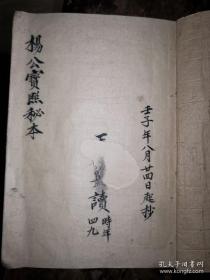 壬子年八月廿四日起抄
讀
時年
四九
楊公寶照秘本
孔夫子旧书网